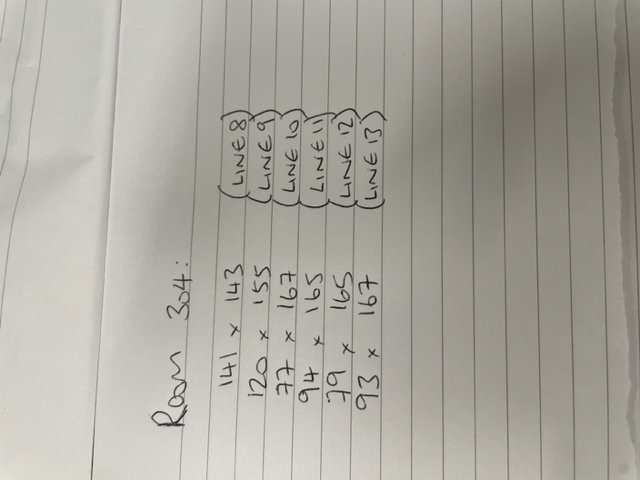 Room 304:
141 x 143 (LINE 8)
120 x 155 (LINE 9)
77 x 167 (LINE 10)
94 x 165 (LINE 11)
79 x 165 (LINE 12)
93 x 167 (LINE 13)